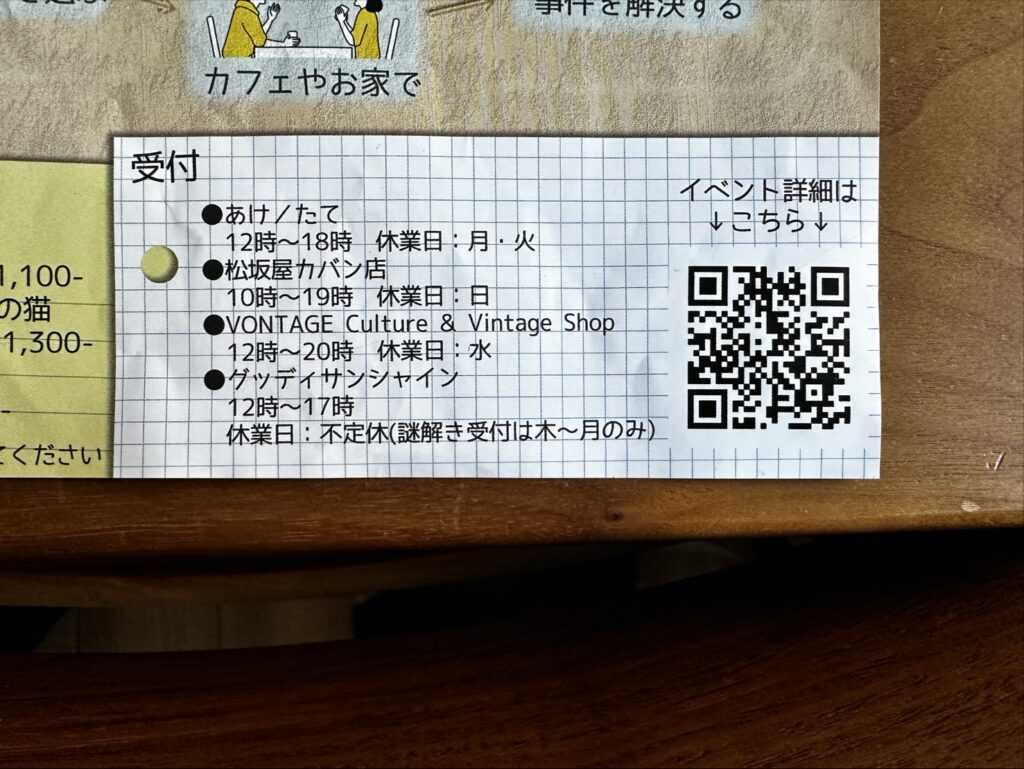 事件を解決する
カフェやお家で
受付
●あけ／たて
12時〜18時 休業日：月・火
●松坂屋カバン店
10時〜19時 休業日：日
●VONTAGE Culture & Vintage Shop
12時〜20時 休業日：水
●グッディサンシャイン
12時〜17時
休業日：不定休(謎解き受付は木〜月のみ)
イベント詳細は
↓こちら↓
1,100-
の猫
1,300-
てください